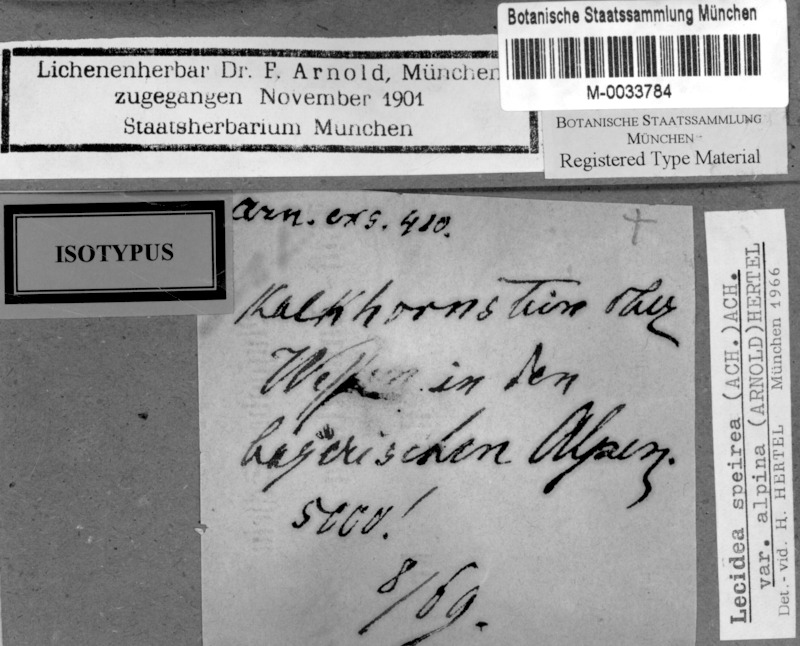 Botanische Staatssammlung München
M-0033784
Lichenenherbar Dr. F. Arnold, München
zugegangen November 1901
Staatsherbarium München
BOTANISCHE STAATSSAMMLUNG
MÜNCHEN
Registered Type Material
ISOTYPUS
Arn. exs. 410.
Kalkhornstein über
in den
bayerischen Alpen.
5000!
8/69.
Lecidea speirea (ACH.)ACH.
var. alpina (ARNOLD)HERTEL
Det.- vid. H. HERTEL München 1966